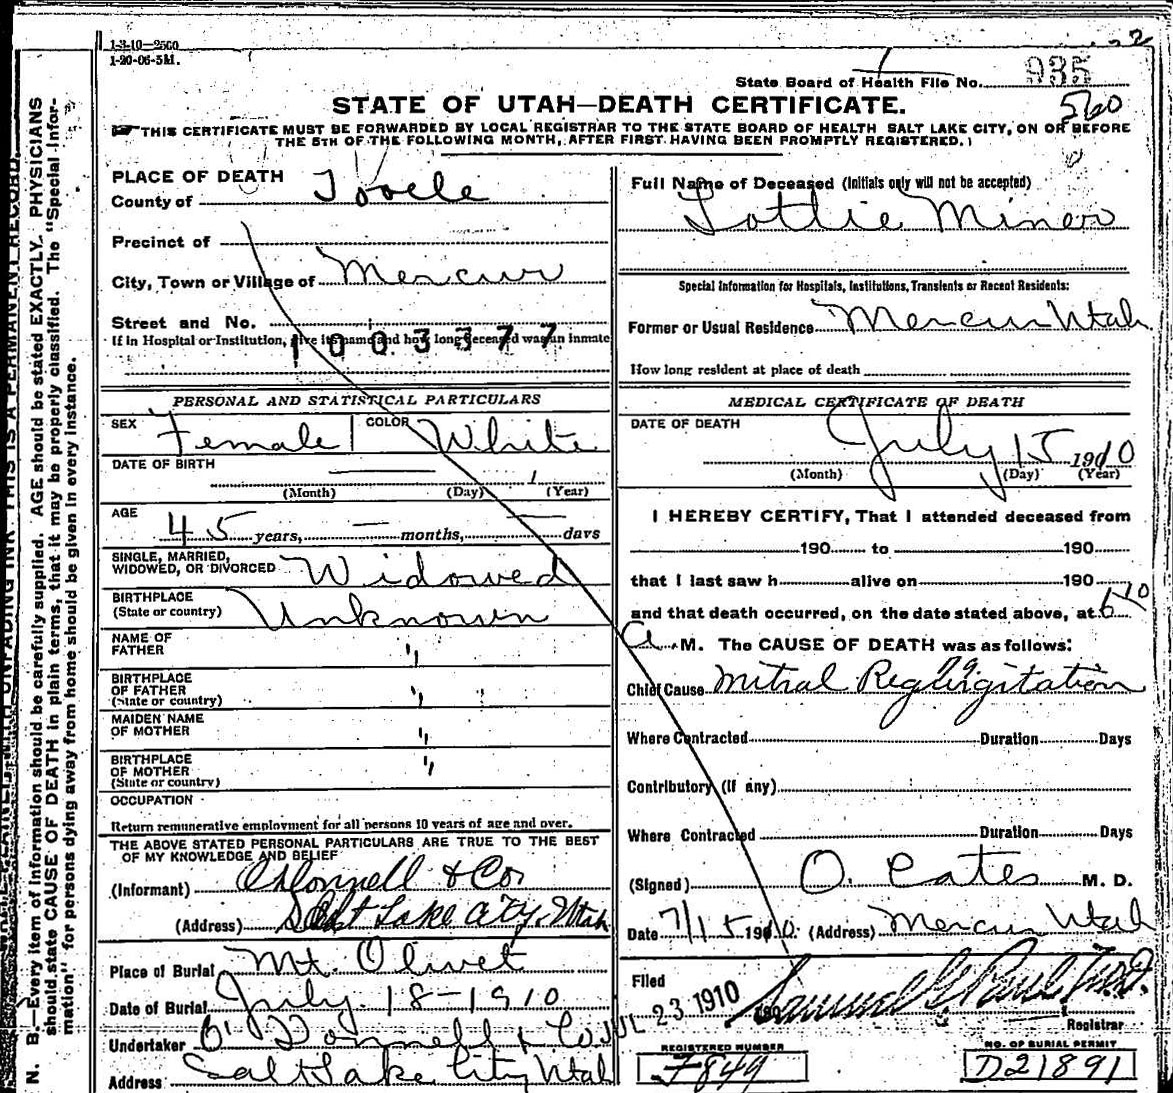 1-3-10—2500
1-20-06-5M.
State Board of Health File No. 935
560
STATE OF UTAH—DEATH CERTIFICATE.
THIS CERTIFICATE MUST BE FORWARDED BY LOCAL REGISTRAR TO THE STATE BOARD OF HEALTH SALT LAKE CITY, ON OR BEFORE
THE 5TH OF THE FOLLOWING MONTH, AFTER FIRST HAVING BEEN PROMPTLY REGISTERED.
PLACE OF DEATH
County of Tooele
Precinct of
City, Town or Village of Mercur
Street and No.
If in Hospital or Institution, give its name and how long deceased was an inmate
1003377
Full Name of Deceased (Initials only will not be accepted)
Lottie Miner
Special Information for Hospitals, Institutions, Transients or Recent Residents:
Former or Usual Residence Mercur Utah
How long resident at place of death
PERSONAL AND STATISTICAL PARTICULARS
SEX Female COLOR White
DATE OF BIRTH
(Month) (Day) (Year)
AGE 45 years, — months, — days
SINGLE, MARRIED,
WIDOWED, OR DIVORCED Widowed
BIRTHPLACE
(State or country) Unknown
NAME OF
FATHER "
BIRTHPLACE
OF FATHER "
(State or country)
MAIDEN NAME
OF MOTHER "
BIRTHPLACE
OF MOTHER "
(State or country)
OCCUPATION
Return remunerative employment for all persons 10 years of age and over.
THE ABOVE STATED PERSONAL PARTICULARS ARE TRUE TO THE BEST
OF MY KNOWLEDGE AND BELIEF
(Informant) O'Donnell & Co.
(Address) Salt Lake City, Utah
Place of Burial Mt. Olivet
Date of Burial July 18-1910
Undertaker O'Donnell & Co
Address Salt Lake City Utah
MEDICAL CERTIFICATE OF DEATH
DATE OF DEATH
July 15 1910
(Month) (Day) (Year)
I HEREBY CERTIFY, That I attended deceased from
190 to 190
that I last saw h alive on 190
and that death occurred, on the date stated above, at 6 10
a M. The CAUSE OF DEATH was as follows:
79
Chief Cause Mitral Regurgitation
Where Contracted Duration Days
Contributory (If any)
Where Contracted Duration Days
(Signed) O. Cates M. D.
Date 7/15 1910. (Address) Mercur Utah
Filed
JUL 23 1910 Samuel G Paul M.D.
Registrar
REGISTERED NUMBER
F849
NO. OF BURIAL PERMIT
D21891
N. B.—Every item of information should be carefully supplied. AGE should be stated EXACTLY. PHYSICIANS
should state CAUSE OF DEATH in plain terms, that it may be properly classified. The "Special Infor-
mation" for persons dying away from home should be given in every instance.
THIS IS A PERMANENT RECORD.